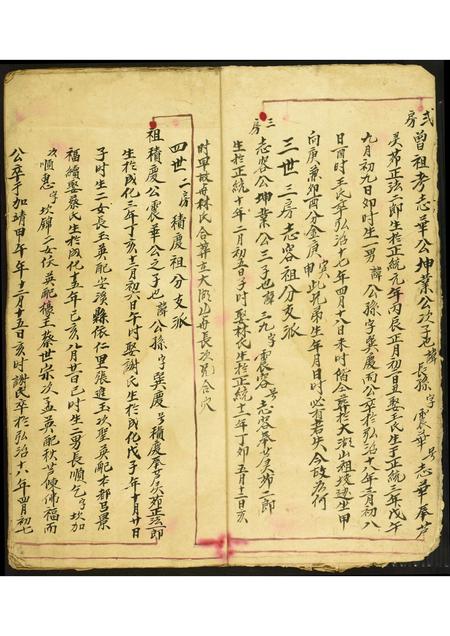 弍房 曾祖考志華公坤業公次子也 諱長孫 字震華 号志華奉
吴苐正法二郎生於正統元年丙辰正月初一日丑娶王氏生于正統三年戊午
九月初九日卯时生一男 諱公孫 字巽慶 而公卒於弘治十八年三月初八
日酉时王氏卒弘治十一年四月十八日未时偕合葬於大湖山祖坟边坐甲
向庚兼卯酉分金庚寅庚申 此兄弟生年月日时必有差失今改为何
三世 三房志容祖分支派
三房 志容公坤業公三子也 諱三九 字震容 号志容奉吴苐二郎
生於正統十年二月初五日子时娶林氏生於正統十二年丁卯五月十二日亥
时卒故母林氏合葬立大湖山母長次合穴
四世 二房積慶祖分支派
祖積慶公震華公之子也 諱公孫 字巽慶 号積慶奉吴苐正法一郎
生於成化三年丁亥十二月初一日午时娶謝氏生於成化戊子年十月廿日
子时生二女長玉英配安溪縣依仁里張進玉次聖英配本都吕景
福續娶蔡氏生於成化十五年己亥八月廿一日巳时生二男長順乞 字坎加
次順惠 字坎錦 二女依英配樓玉蔡世宗次孟英配秋苦陳佛福而
公卒于加靖甲午年十二月十五日亥时謝氏卒於弘治十八年四月初七